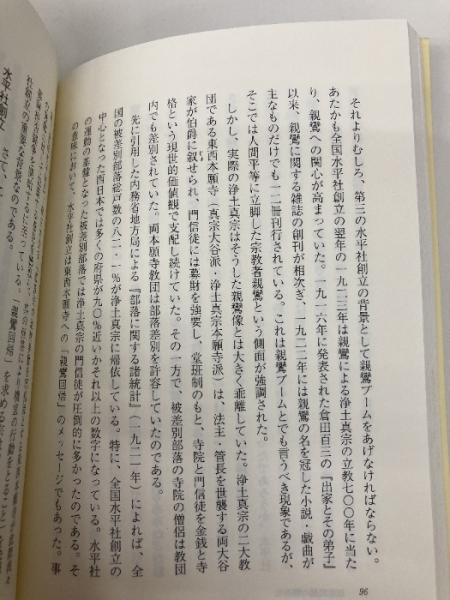 それよりむしろ、第三の水平社創立の背景として親鸞ブームをあげなければならない。
あたかも全国水平社創立の翌年の一九二三年は親鸞による浄土真宗の立教七〇〇年に当た
り、親鸞への関心が高まっていた。一九一六年に発表された倉田百三の『出家とその弟子』
以来、親鸞に関する雑誌の創刊が相次ぎ、一九二二年には親鸞の名を冠した小説・戯曲が
主なものだけでも一二冊刊行されている。これは親鸞ブームとでも言うべき現象であるが、
そこでは人間平等に立脚した宗教者親鸞という側面が強調された。
しかし、実際の浄土真宗はそうした親鸞像とは大きく乖離していた。浄土真宗の二大教
団である東西本願寺（真宗大谷派・浄土真宗本願寺派）は、法主・管長を世襲する両大谷
家が伯爵に叙せられ、門信徒には募財を強要し、堂班制のもと、寺院と門信徒を金銭と寺
格という現世的価値観で支配し続けていた。その一方で、被差別部落の寺院の僧侶は教団
内でも差別されていた。両本願寺教団は部落差別を許容していたのである。
先に引用した内務省地方局による『部落に関する諸統計』（一九二一年）によれば、全
国の被差別部落総戸数の八二・一％が浄土真宗に帰依している。特に、全国水平社創立の
中心となった西日本では多くの府県が九〇％近いかそれ以上の数字になっている。水平社
の運動の基盤となった被差別部落では浄土真宗の門信徒が圧倒的に多かったのである。そ
の意味において、水平社創立は東西本願寺への「親鸞回帰」のメッセージでもあった。事
「親鸞回帰」を求める
社創立の重要な背景なのである。
水平社創立
96